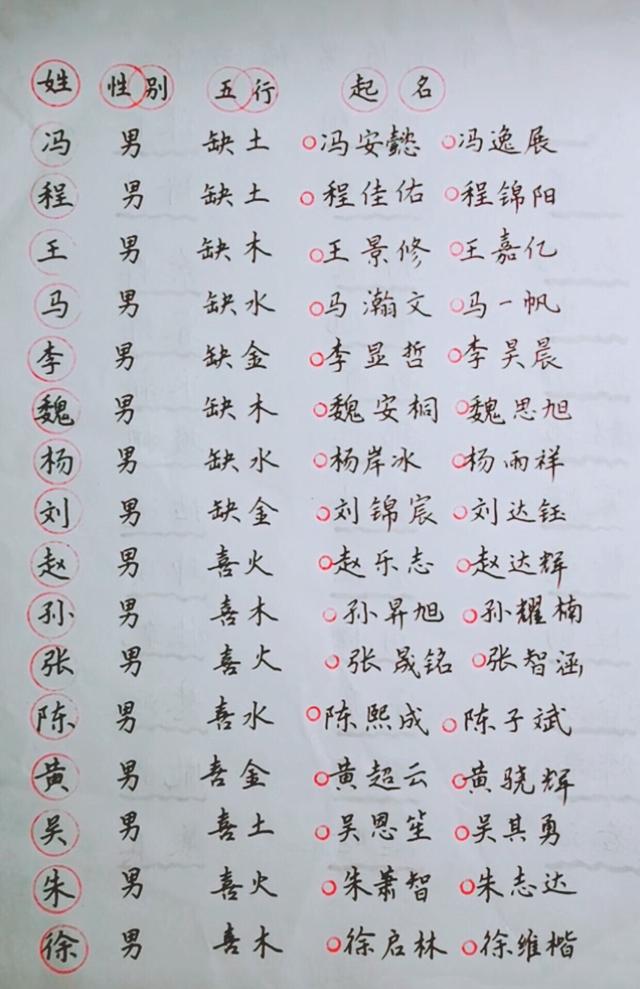 姓 性别 五行 起名
冯 男 缺土 冯安懿 冯逸展
程 男 缺土 程佳佑 程锦阳
王 男 缺木 王景修 王嘉亿
马 男 缺水 马瀚文 马一帆
李 男 缺金 李显哲 李昊晨
魏 男 缺木 魏安桐 魏思旭
杨 男 缺水 杨岸冰 杨雨祥
刘 男 缺金 刘锦宸 刘达钰
赵 男 喜火 赵乐志 赵达辉
孙 男 喜木 孙昇旭 孙耀楠
张 男 喜火 张晟铭 张智涵
陈 男 喜水 陈熙成 陈子斌
黄 男 喜金 黄超云 黄骁辉
吴 男 喜土 吴恩笙 吴其勇
朱 男 喜火 朱萧智 朱志达
徐 男 喜木 徐启林 徐维楷